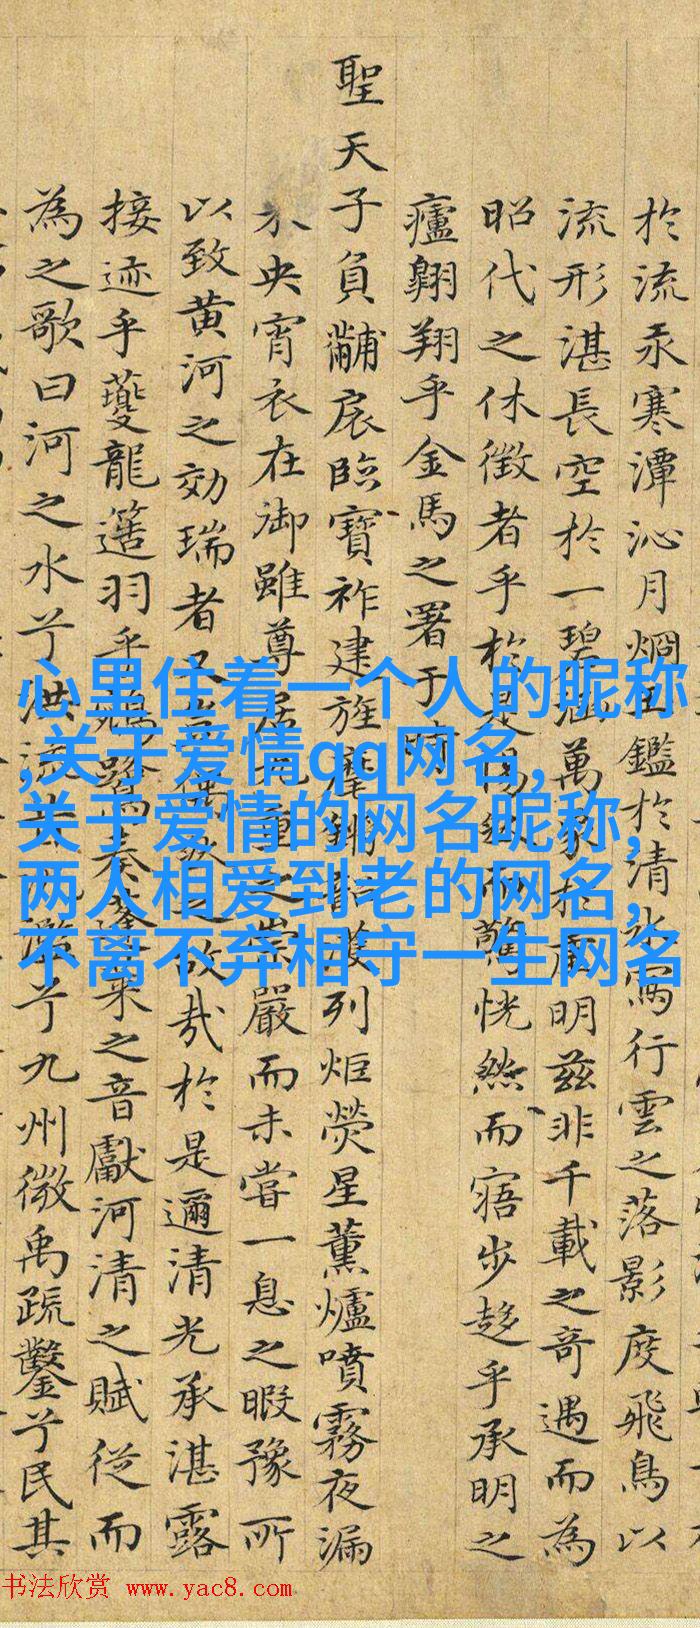 於流汞寒潭沁月烱玉鑑於清冰寫行雲之落影度飛鳥以
流形湛長空於一碧涵萬象於虛明茲非千載之奇遇而為
昭代之休徵者乎於是而驚恍然而寤步趍乎承明之
廬翱翔乎金馬之署于時
聖天子負黼扆臨寶祚建旌麾鏘韶濩列炬熒星薰爐噴霧夜漏
未央宵衣在御雖尊居九重之崇嚴而未嘗一息之暇豫所
以致黃河之効瑞者又豈偶然之故哉於是邇清光承湛露
接迹乎夔龍簉羽乎鵷鷺奏蓬萊之音獻河清之賦從而
為之歌曰河之水兮洪流兮九州微禹疏鑿兮民其
心里住着一个人的昵称
,关于爱情qq网名,
关于爱情的网名昵称,
两人相爱到老的网名,
不离不弃相守一生网名
书法欣赏 www.yac8.com